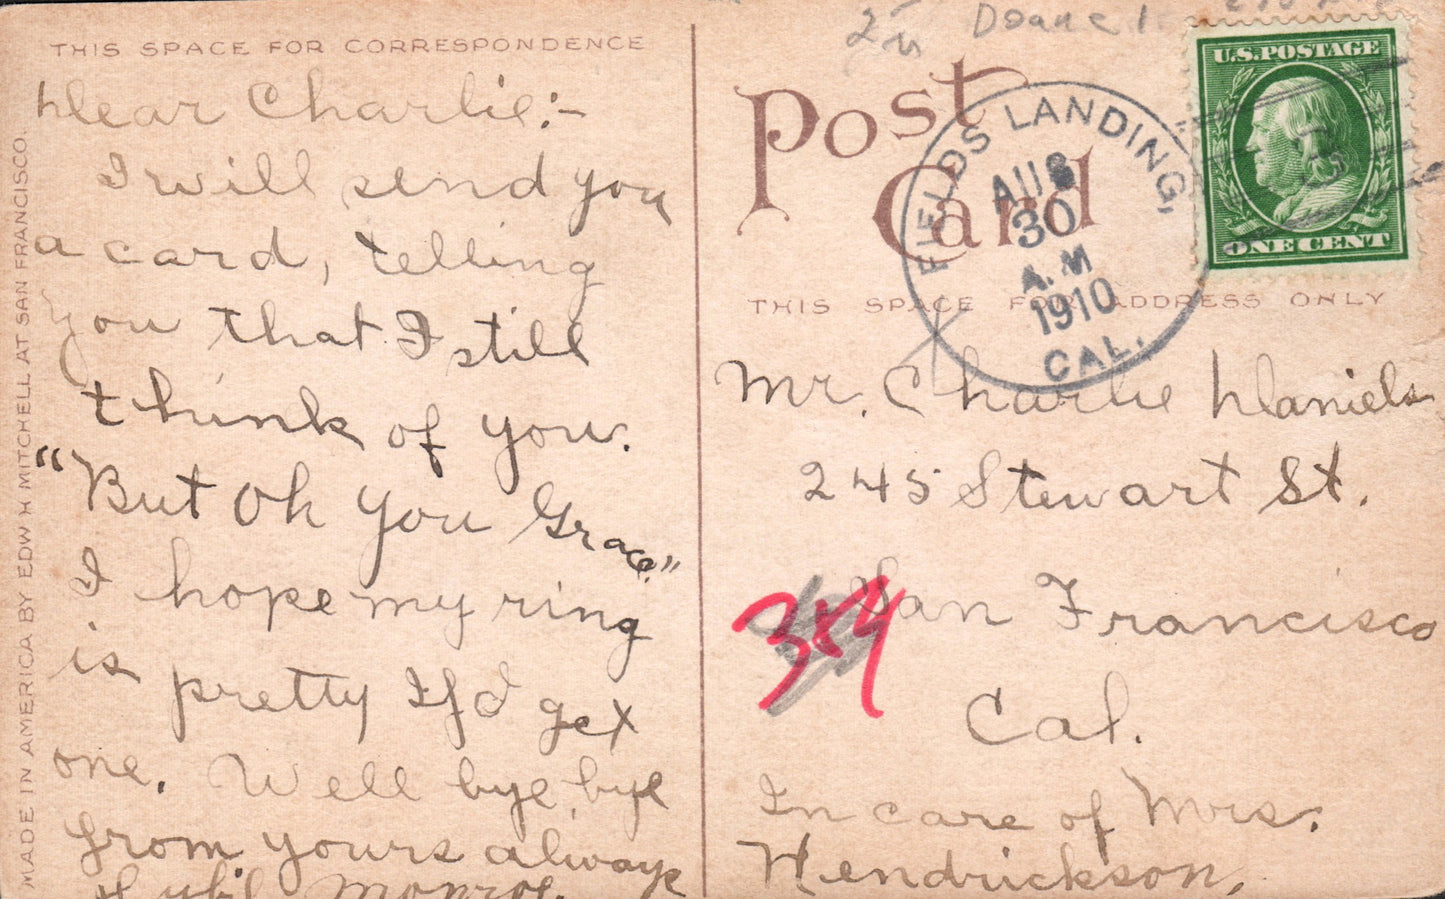 THIS SPACE FOR CORRESPONDENCE
Dear Charlie:-
I will send you
a card, telling
you that I still
think of you.
"But Oh you Grace."
I hope my ring
is pretty If I get
one. Well bye, bye
from yours always
Sybil Monroe.
MADE IN AMERICA BY EDW H MITCHELL AT SAN FRANCISCO.
Doane
Post
Card
THIS SPACE FOR ADDRESS ONLY
FIELDS LANDING,
AUG
30
A.M
1910
CAL.
U.S. POSTAGE
ONE CENT
Mr. Charlie Daniels
245 Stewart St.
San Francisco
Cal.
In care of Mrs.
Hendrickson,